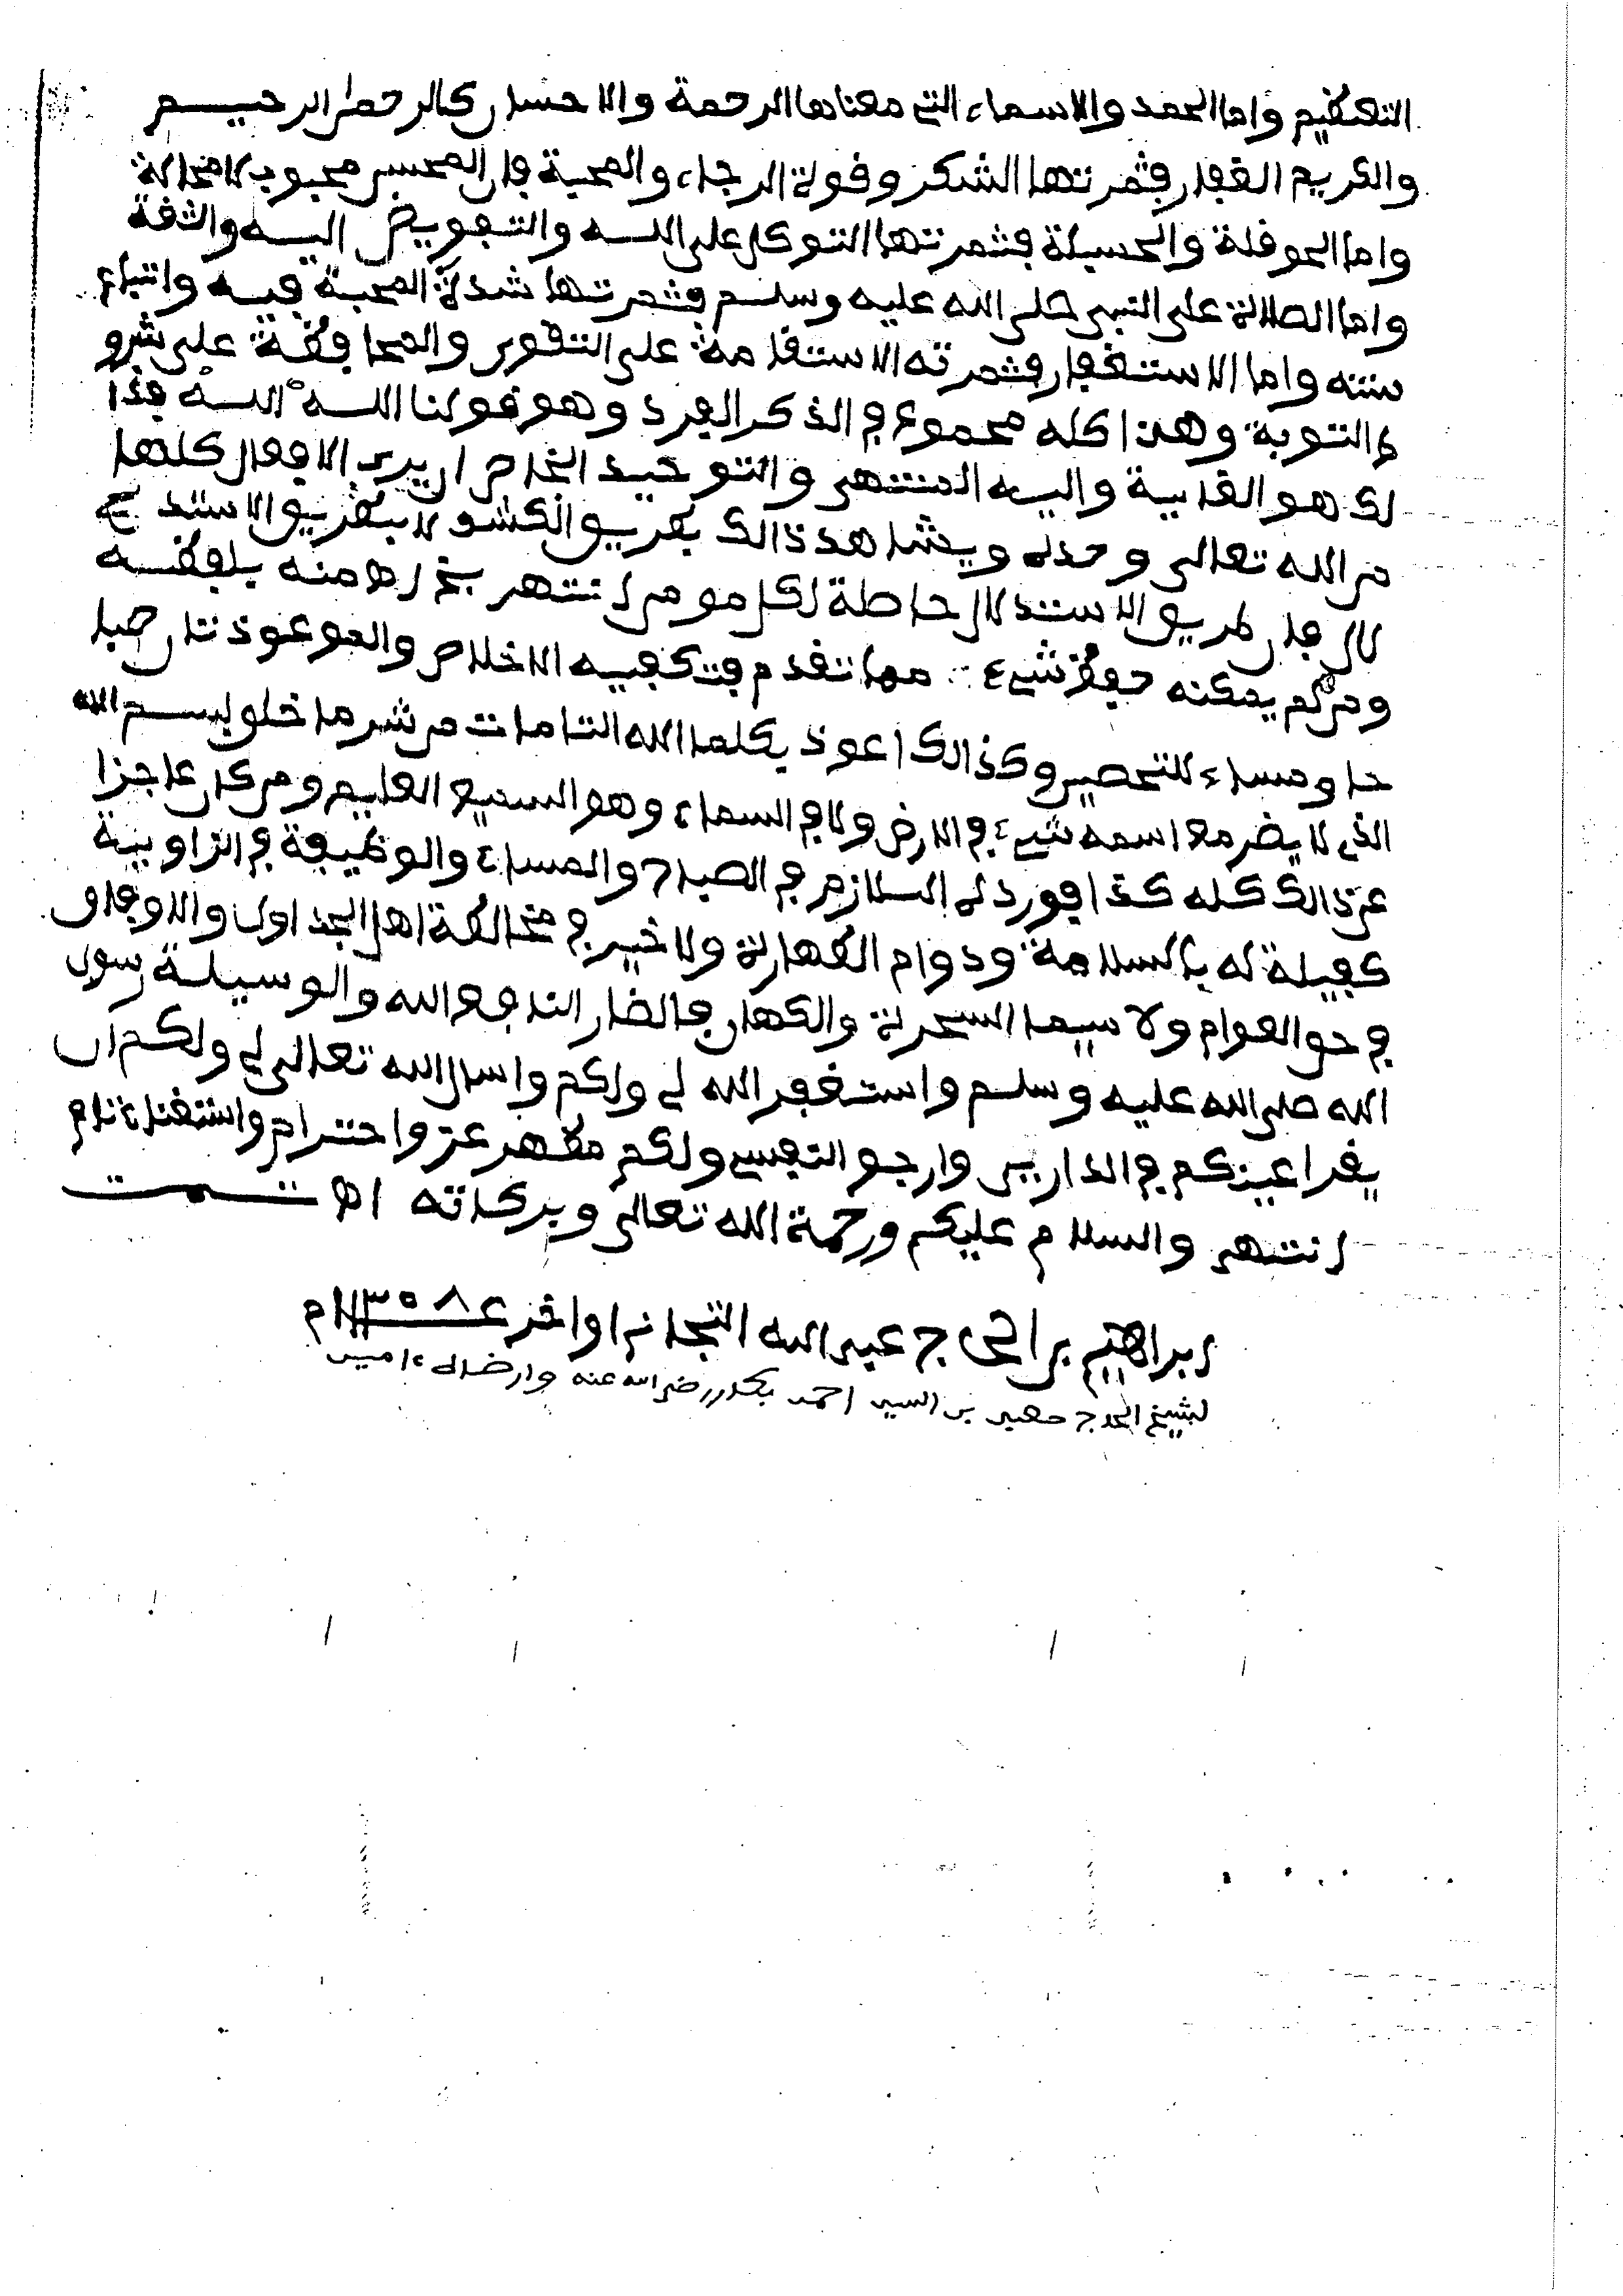 التعظيم واما الحمد والاسماء التى معناها الرحمة والاحسان كالرحمن الرحيم
والكريم الغفار فثمرتها الشكر وقوة الرجاء والمحبة فان المحسن محبوب لا محالة
واما الحوقلة والحسبلة فثمرتها التوكل على الله والتفويض اليه والثقة
واما الصلاة على النبى صلى الله عليه وسلم فثمرتها شدة المحبة فيه واتباع
سنته واما الاستغفار فثمرته الاستقامة على التقوى والمحافظة على شرو
ط التوبة وهذا كله مجموع فى الذكر المفرد وهو قولنا الله الله فذا
لك هو الغاية واليه المنتهى والتوحيد الخاص ان يرى الافعال كلها
من الله تعالى وحده ويشاهد ذالك بطريق الكشف لا بطريق الاستد
لال فان طريق الاستدلال حاصلة لكل مومن انتهى بخ اه منه بلفظه
ومن لم يمكنه حفظ شىء مما تقدم فتكفيه الاخلاص والمعوذتان صبا
حا ومساء للتحصين وكذالك اعوذ بكلمات الله التامات من شر ما خلق بسم الله
الذى لا يضر مع اسمه شىء فى الارض ولا فى السماء وهو السميع العليم ومن كان عاجزا
عن ذالك كله كذا فورده اللازم فى الصباح والمساء والوظيفة فى الزاوية
كفيلة له بالسلامة ودوام الطهارة ولا خير فى مخالطة اهل الجداول والاوفاق
فى حق العوام ولا سيما السحرة والكهان فالضار النافع الله والوسيلة رسول
الله صلى الله عليه وسلم واستغفر الله لى ولكم واسال الله تعالى لى ولكم ان
يقر اعينكم فى الدارين وارجو لنفسى ولكم مظهر عز واحترام واستغناء تام
انتهى والسلام عليكم ورحمة الله تعالى وبركاته اه تمت
ابراهيم بن الحاج عبد الله التجانى اواخر عام ١٣٥٨
لشيخ الحاج بن السيد احمد رضى الله عنه وارضاه ءامين